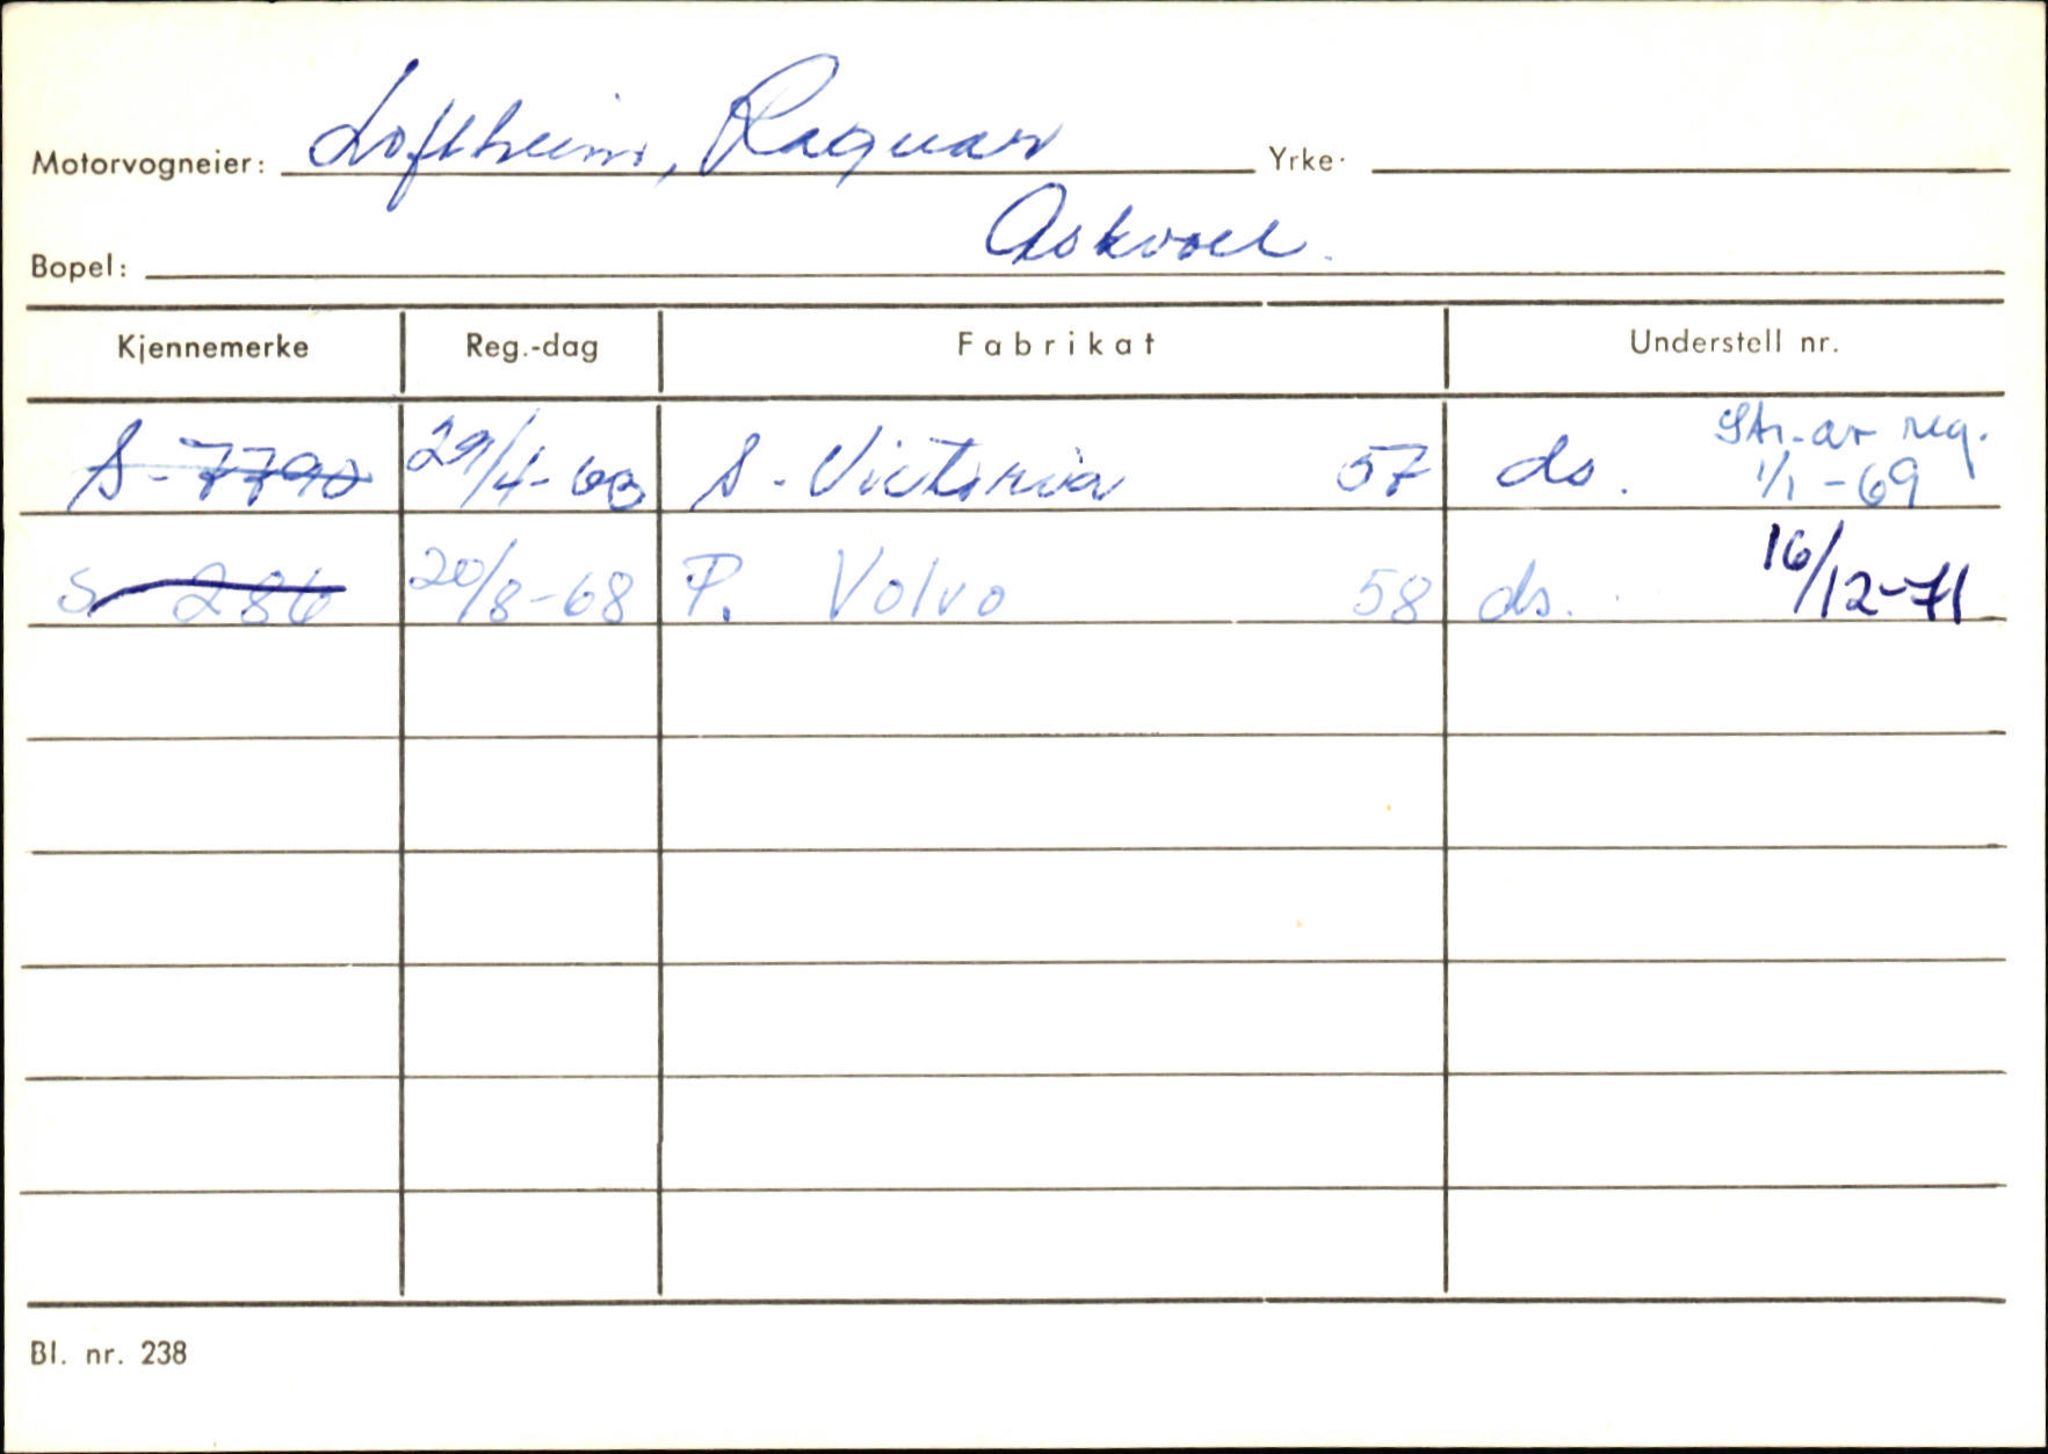 Motorvogneier: Loftheim, Ragnar Yrke:
Bopel: Askvoll.
Kjennemerke Reg.-dag Fabrikat Understell nr.
S-7790 29/4-60 S-Victoria 57 ds. Str. av reg. 1/1-69
S 286 20/8-68 P. Volvo 58 ds. 16/12-71
Bl. nr. 238